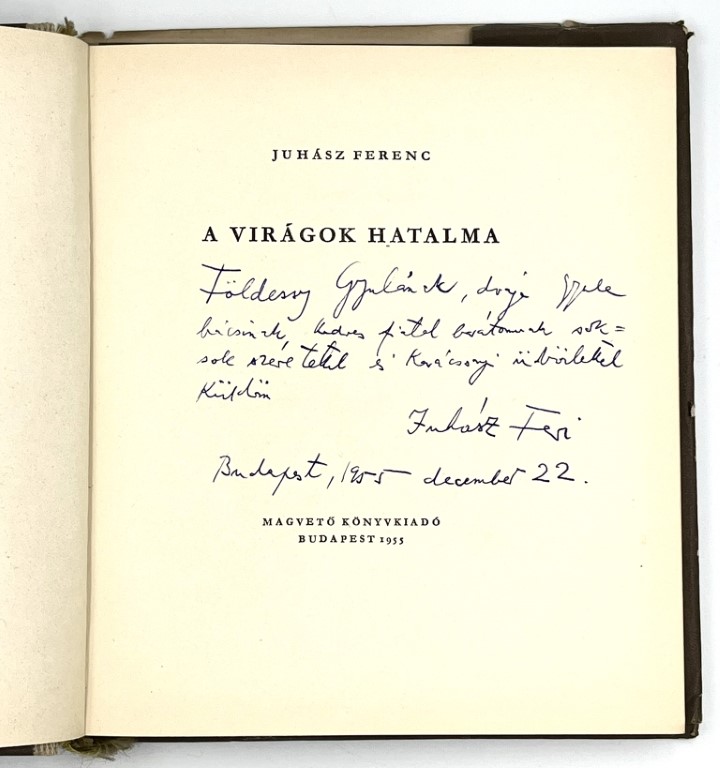 JUHÁSZ FERENC
A VIRÁGOK HATALMA
Földessy Gyulának, drága Gyula
bácsinak, kedves fiatal barátomnak sok=
sok szeretettel és Karácsonyi üdvözlettel
küldöm
Juhász Feri
Budapest, 1955 december 22.
MAGVETŐ KÖNYVKIADÓ
BUDAPEST 1955